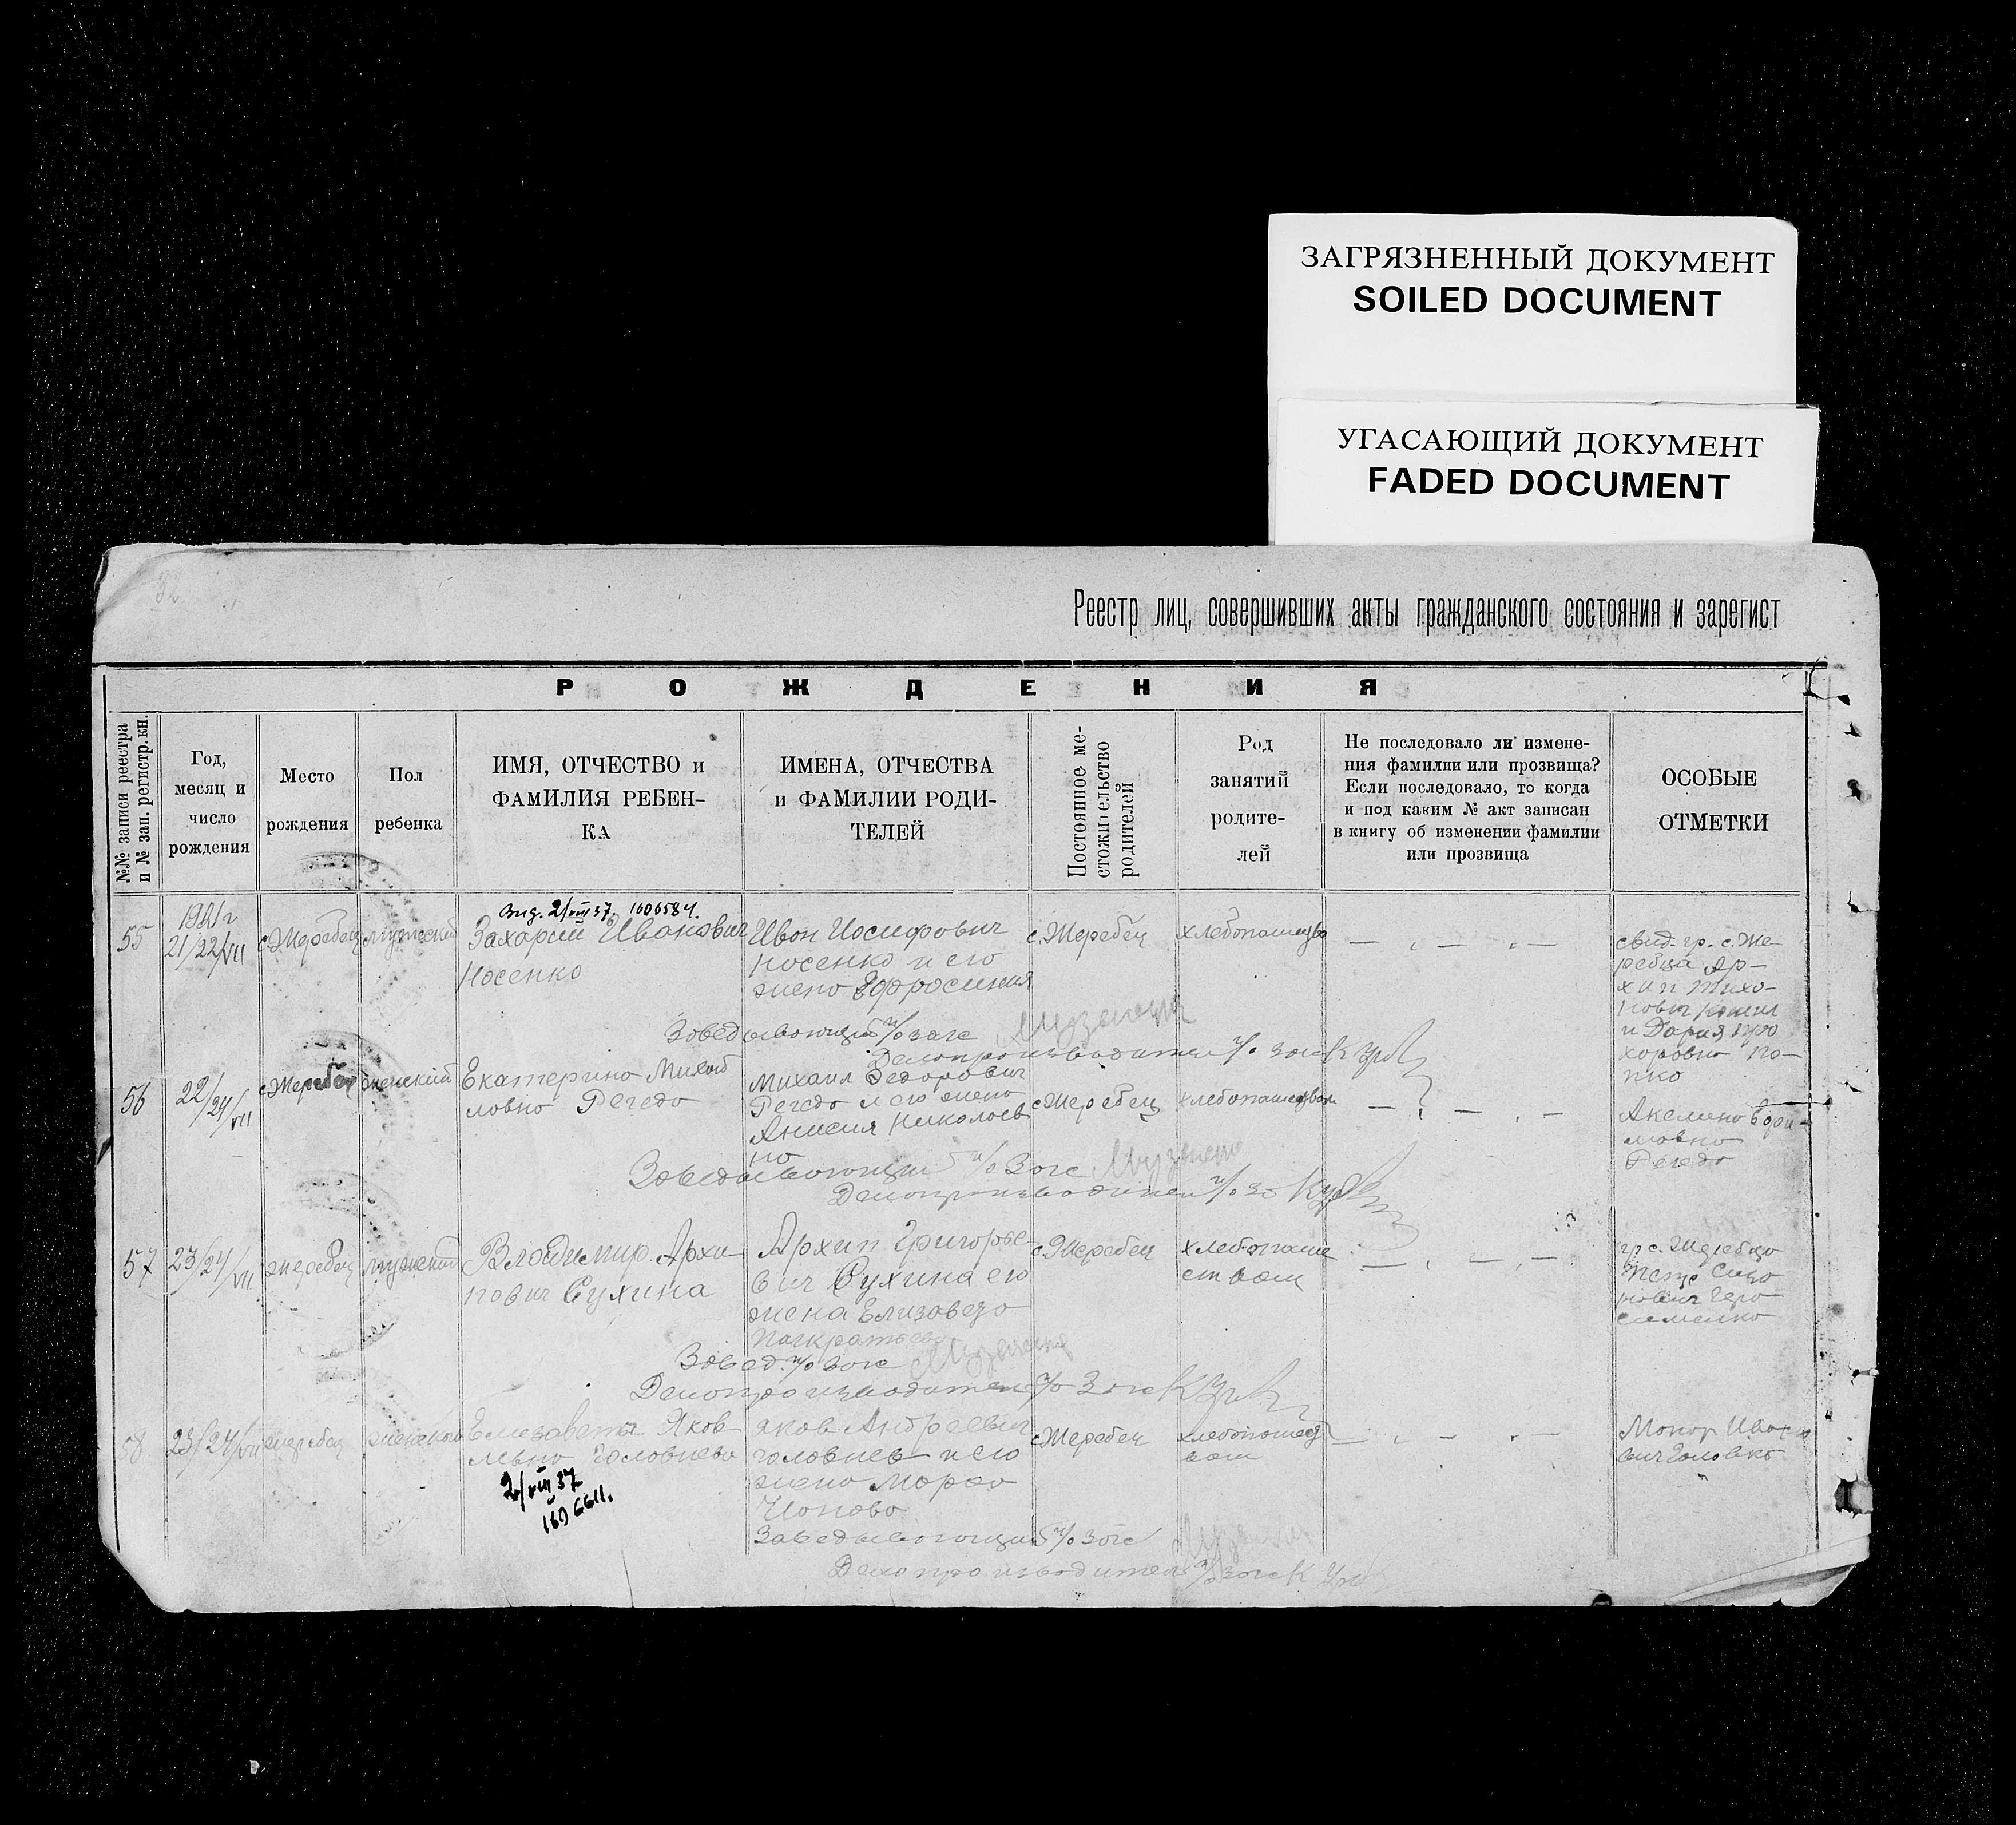 ЗАГРЯЗНЕННЫЙ ДОКУМЕНТ
SOILED DOCUMENT
УГАСАЮЩИЙ ДОКУМЕНТ
FADED DOCUMENT
32
Реестр лиц, совершивших акты гражданского состояния и зарегист
РОЖДЕНИЯ
№№ записи реестра
и № зап. регистр. кн.
Год,
месяц и
число
рождения
Место
рождения
Пол
ребенка
ИМЯ, ОТЧЕСТВО и
ФАМИЛИЯ РЕБЕН-
КА
ИМЕНА, ОТЧЕСТВА
и ФАМИЛИИ РОДИ-
ТЕЛЕЙ
Постоянное ме-
стожительство
родителей
Род
занятий
родите-
лей
Не последовало ли измене-
ния фамилии или прозвища?
Если последовало, то когда
и под каким № акт записан
в книгу об изменении фамилии
или прозвища
ОСОБЫЕ
ОТМЕТКИ
55
1921 г
21/22/VII
с. Жеребец
мужской
Вид. 2/VIII 37. 1606584.
Захарий Иванович
Носенко
Иван Иосифович
Носенко и его
жена Ефросиния
с. Жеребец
хлебопашество
свид. гр. с. Же-
ребца Ар-
хип Тихо-
нович
и Дария Про
хоровна По-
пко
Заведывающий п/о загс
Делопроизводитель п/о загс
56
22/24/VII
с. Жеребец
женский
Екатерина Михай
ловна Регеда
Михаил Федорович
Регеда и его жена
Анисия Николаев
на
с. Жеребец
хлебопашеством
Регеда
Заведывающий п/о Загс
Делопроизводитель п/о за
57
23/24/VII
Жеребец
мужский
Владимир Архи-
пович Сухина
Архип Григорье-
вич Сухина его
жена Елизавета
Панкратьев
с. Жеребец
хлебопаше
ством
гр с. Жеребца
Завед. п/о загс
Делопроизводитель п/о Загс
58
23/24/VII
Жеребец
женский
Елизавета Яков-
левна Головнева
2/VIII 37
160 6611.
Яков Андреевич
Головнев и его
жена Марфа
с. Жеребец
хлебопашест
вом
Макар Ивано
вич Головко
Заведывающий п/о Загс
Делопроизводитель п/о загс